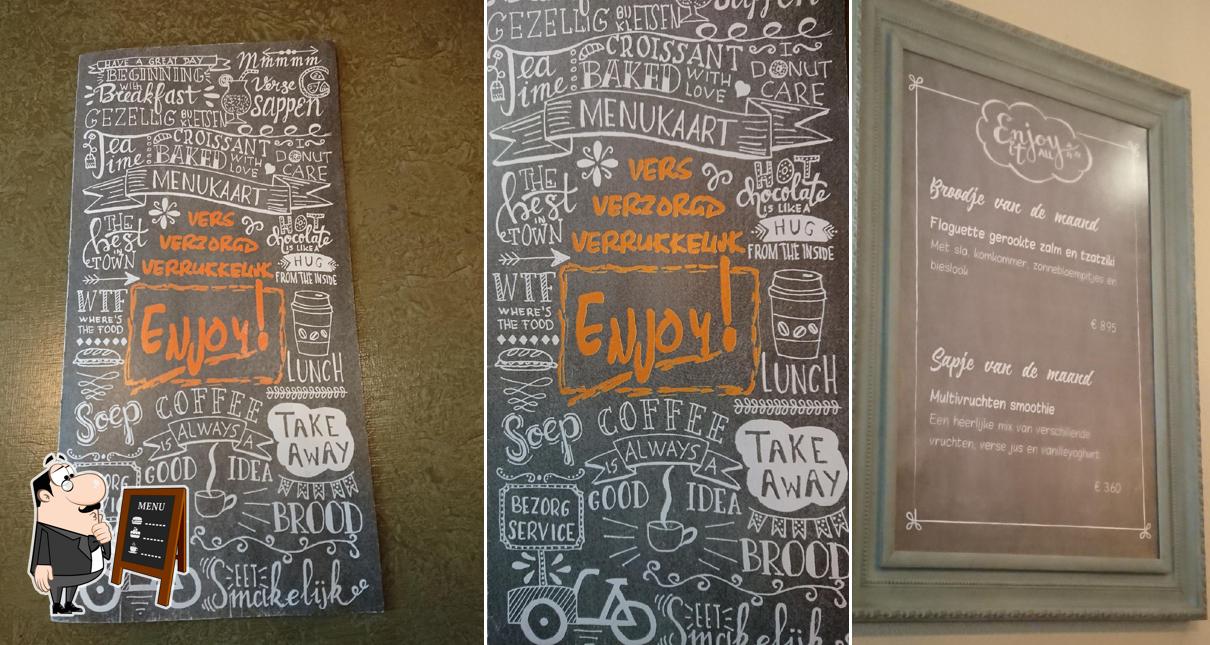 HAVE A GREAT DAY
BEGINNING
WITH
Breakfast
Mmmmm
Verse
Sappen
GEZELLIG BIJ KLETSEN
Tea Time
CROISSANT
BAKED WITH LOVE
I DONUT CARE
MENUKAART
THE
best
IN
TOWN
VERS
VERZORGD
VERRUKKELIJK
HOT
chocolate
IS LIKE A
HUG
FROM THE INSIDE
WTF
WHERE'S
THE FOOD
ENJOY!
LUNCH
Soep
COFFEE
IS ALWAYS A
GOOD IDEA
TAKE
AWAY
BROOD
EET
Smakelijk
MENU
Sappen
GEZELLIG BIJ KLETSEN
Tea Time
CROISSANT
BAKED WITH LOVE
I DONUT CARE
MENUKAART
THE
best
IN
TOWN
VERS
VERZORGD
VERRUKKELIJK
HOT
chocolate
IS LIKE A
HUG
FROM THE INSIDE
WTF
WHERE'S
THE FOOD
ENJOY!
LUNCH
Soep
COFFEE
IS ALWAYS A
GOOD IDEA
TAKE
AWAY
BEZORG
SERVICE
BROOD
EET
Smakelijk
Enjoy
it ALL
Broodje van de maand
Flaguette gerookte zalm en tzatziki
Met sla, komkommer, zonnebloempitjes en
bieslook
€ 8.95
Sapje van de maand
Multivruchten smoothie
Een heerlijke mix van verschillende
vruchten, verse jus en vanilleyoghurt
€ 3.60